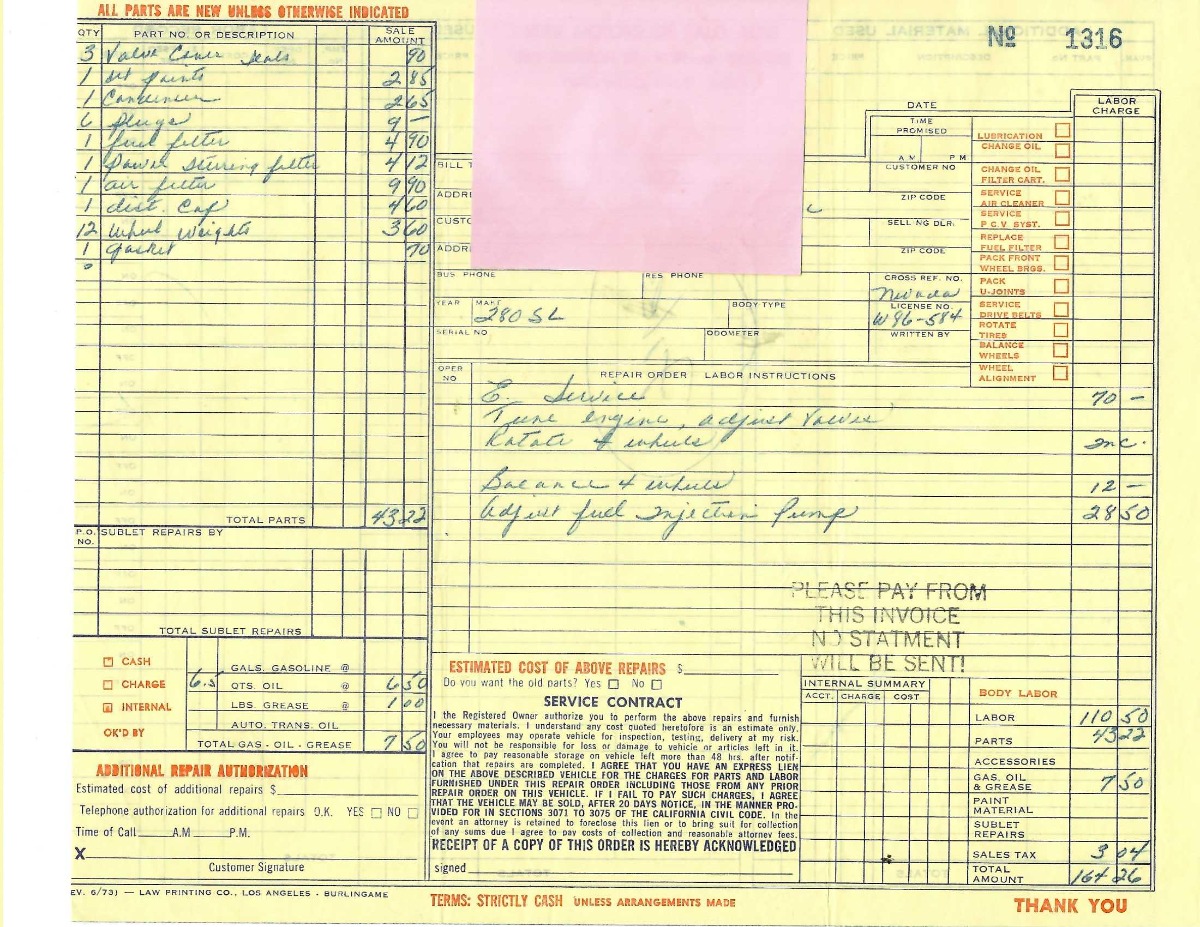 ALL PARTS ARE NEW UNLESS OTHERWISE INDICATED
QTY PART NO. OR DESCRIPTION SALE AMOUNT
3 Valve Cover Seals 90
1 set points 2 85
1 Condenser 2 65
6 plugs 9 —
1 fuel filter 4 90
1 power steering filter 4 12
1 air filter 9 90
1 dist. Cap 4 60
12 wheel weights 3 60
1 gasket 70
TOTAL PARTS 43 22
P.O. NO. SUBLET REPAIRS BY
TOTAL SUBLET REPAIRS
CASH
CHARGE
INTERNAL
OK'D BY
GALS. GASOLINE @
6.5 QTS. OIL @ 6 50
LBS. GREASE @ 1 00
AUTO. TRANS. OIL
TOTAL GAS - OIL - GREASE 7 50
ADDITIONAL REPAIR AUTHORIZATION
Estimated cost of additional repairs $
Telephone authorization for additional repairs O.K. YES NO
Time of Call A.M P.M.
X
Customer Signature
EV. 6/73) — LAW PRINTING CO., LOS ANGELES - BURLINGAME
Nº 1316
DATE
LABOR CHARGE
TIME PROMISED
A M P M
CUSTOMER NO
ZIP CODE
SELLNG DLR.
ZIP CODE
CROSS REF. NO.
Nevada
LICENSE NO.
W86-584
WRITTEN BY
LUBRICATION
CHANGE OIL
CHANGE OIL FILTER CART.
SERVICE AIR CLEANER
SERVICE P.C.V SYST.
REPLACE FUEL FILTER
PACK FRONT WHEEL BRGS.
PACK U-JOINTS
SERVICE DRIVE BELTS
ROTATE TIRES
BALANCE WHEELS
WHEEL ALIGNMENT
BILL T
ADDRE
CUSTO
ADDRI
BUS PHONE RES. PHONE
YEAR MAKE BODY TYPE
280 SL
SERIAL NO ODOMETER
OPER NO REPAIR ORDER LABOR INSTRUCTIONS
E. Service 70 —
Tune engine, adjust Valves
Rotate 4 wheels Inc.
Balance 4 wheels 12 —
Adjust fuel Injection Pump 28 50
PLEASE PAY FROM
THIS INVOICE
NO STATMENT
WILL BE SENT!
ESTIMATED COST OF ABOVE REPAIRS $
Do you want the old parts? Yes No
SERVICE CONTRACT
I the Registered Owner authorize you to perform the above repairs and furnish
necessary materials. I understand any cost quoted heretofore is an estimate only.
Your employees may operate vehicle for inspection, testing, delivery at my risk.
You will not be responsible for loss or damage to vehicle or articles left in it.
I agree to pay reasonable storage on vehicle left more than 48 hrs. after notif-
cation that repairs are completed. I AGREE THAT YOU HAVE AN EXPRESS LIEN
ON THE ABOVE DESCRIBED VEHICLE FOR THE CHARGES FOR PARTS AND LABOR
FURNISHED UNDER THIS REPAIR ORDER INCLUDING THOSE FROM ANY PRIOR
REPAIR ORDER ON THIS VEHICLE. IF I FAIL TO PAY SUCH CHARGES, I AGREE
THAT THE VEHICLE MAY BE SOLD, AFTER 20 DAYS NOTICE, IN THE MANNER PRO-
VIDED FOR IN SECTIONS 3071 TO 3075 OF THE CALIFORNIA CIVIL CODE. In the
event an attorney is retained to foreclose this lien or to bring suit for collection
of any sums due I agree to pay costs of collection and reasonable attorney fees.
RECEIPT OF A COPY OF THIS ORDER IS HEREBY ACKNOWLEDGED
signed
INTERNAL SUMMARY
ACCT. CHARGE COST
BODY LABOR
LABOR 110 50
PARTS 43 22
ACCESSORIES
GAS, OIL & GREASE 7 50
PAINT MATERIAL
SUBLET REPAIRS
SALES TAX 3 04
TOTAL AMOUNT 164 26
TERMS: STRICTLY CASH UNLESS ARRANGEMENTS MADE
THANK YOU